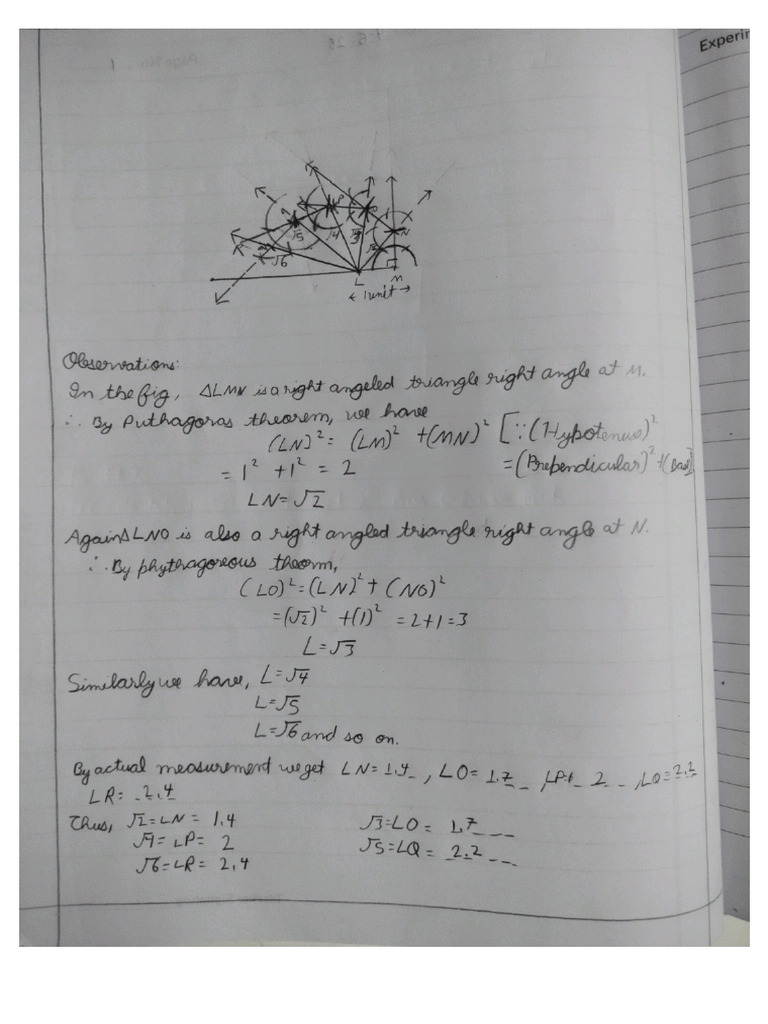 Experim
P
O
N
√5
√4
√3
√2
√6
L
M
← 1unit →
Observations:
In the fig, ΔLMN is a right angeled triangle right angle at M.
∴ By Puthagoras theorem, we have
(LN)² = (LM)² + (MN)² [∵ (Hypotenuse)²
= 1² + 1² = 2 = (Prependicular)² + (Base)
LN = √2
Again ΔLNO is also a right angled triangle right angle at N.
∴ By phythagoreous theorm,
(LO)² = (LN)² + (NO)²
= (√2)² + (1)² = 2+1 = 3
L = √3
Similarly we have, L = √4
L = √5
L = √6 and so on.
By actual measurement we get LN = 1.4 , LO = 1.7 , LP = 2 , LQ = 2.2
LR = 2.4
Thus, √2 = LN = 1.4 √3 = LO = 1.7
√4 = LP = 2 √5 = LQ = 2.2
√6 = LR = 2.4